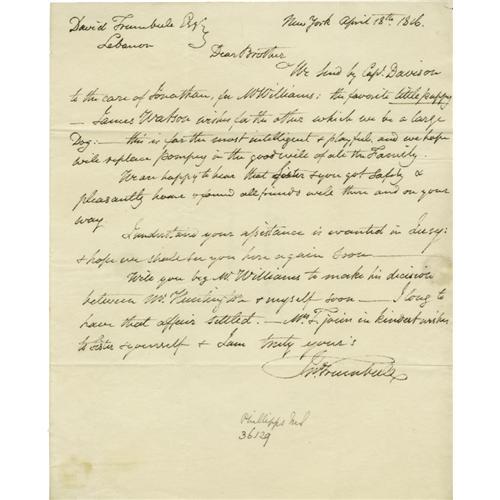 David Trumbull Esqr
Lebanon
New York April 18th 1806.
Dear Brother
We send by Capt. Davison
to the care of Jonathan, for Mr Williams: the favorite little puppy
— James Watson for the other which we be a large
Dog: — this is far the most intelligent & playful, and we hope
will replace Pompey in the goodwill of all the Family.
We are happy to hear that Sister & you got safely &
pleasantly home & found all friends well there and on your
way.
I understand your assistance is wanted in
& hope we shall see you here again soon.
Will you beg Mr. Williams to make his decision
between Mr. Huntington & myself soon — I long to
have that affair settled. — Mrs T. joins in kindest wishes
to Sister & yourself & I am truly your's
Jno Trumbull
Phillipps Ms
36129